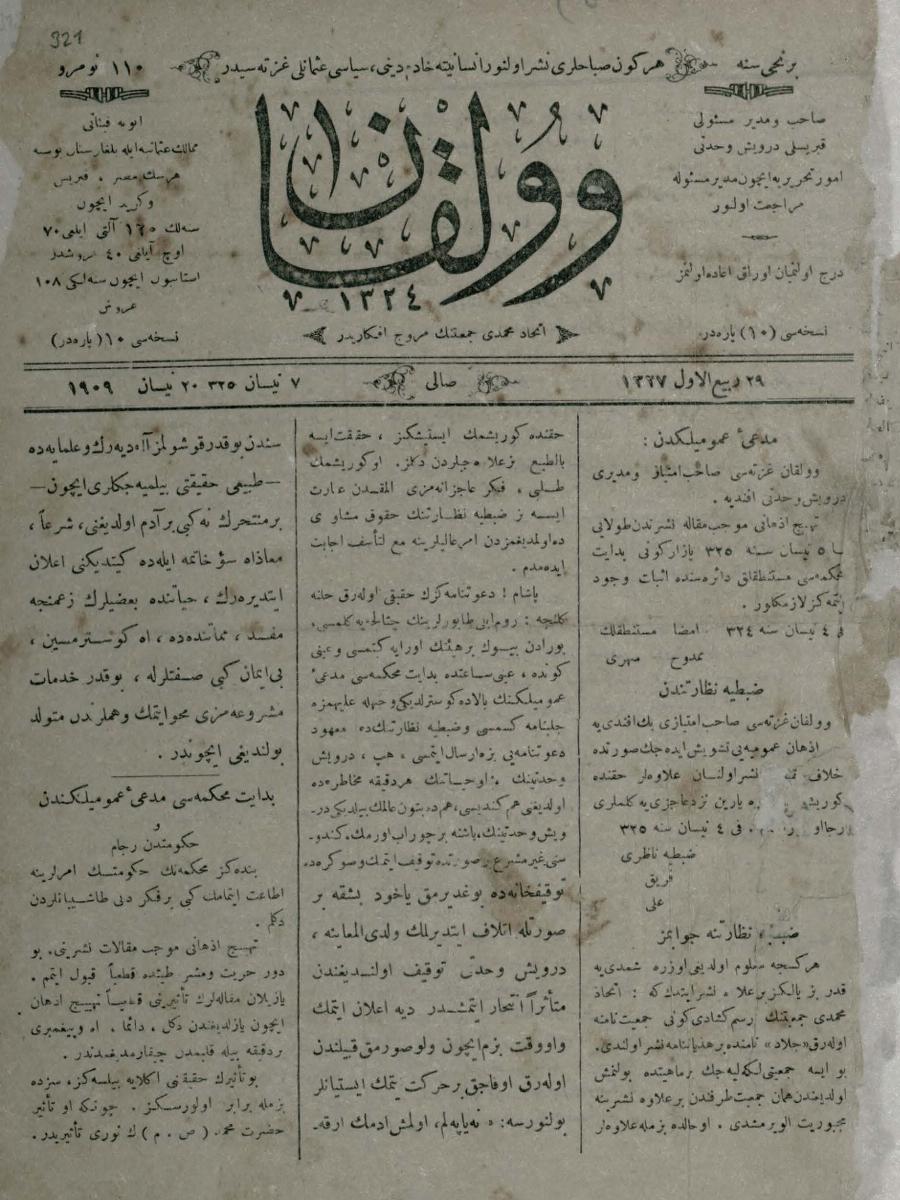 321
برنجی سنه
هرکون صباحلری نشر اولنور انسانیته خادم دینی، سیاسی عثمانلی غزته سیدر
١١٠ نومرو
صاحب ومدیر مسئولی
قبریسلی درویش وحدتی
امور تحریریه ایچون مدیر مسئوله
مراجعت اولنور
درج اولنمیان اوراق اعاده اولنمز
نسخه‌سی (١٠) پاره‌در
وولقان
١٣٢٤
اتحاد محمدی جمعیتنك مروج افکاریدر
ابونه فیئاتی
ممالك عثمانیه ایله بلغارستان بوسنه
هرسك مصر . قبریس
وکرید ایچون
آلتی آیلغی ٧٠
اوچ آیلغی ٤٠ غروشدر
ایچون سنه‌لکی ١٠٨
غروش
نسخه‌سی ١٠ (پاره‌در)
٢٩ ربیع الاول ١٣٢٧
صالی
٧ نیسان ٣٢٥ ٢٠ نیسان ١٩٠٩
مدعیء عمومیلکدن :
وولقان غزته‌سی صاحب امتیاز ومدیری
درویش وحدتی افندیه .
تهییج اذهانی موجب مقاله نشرندن طولایی
٥ نیسان سنه ٣٢٥ پازار کونی بدایت
محکمه‌سی مستنطقلق دائره‌سنده اثبات وجود
ایتمه‌کز لازمکلور .
فی ٤ نیسان سنه ٣٢٤ امضا مستنطقلك
ممدوح مهری
ضبطیه نظارتندن
وولقان غزته‌سی صاحب امتیازی بك افندی‌یه
اذهان عمومیه‌یی تشویش ایده‌جك صورتده
خلاف نشر اولنان علاوه‌لر حقنده
یارین نزد عاجزی‌یه کلملری
رجا فی ٤ نیسان سنه ٣٢٥
ضبطیه ناظری
فریق
علی
ضبطیه نظارتنه جوابمز
هرکسجه معلوم اولدیغی اوزره شمدی‌یه
قدر بز یالکز بر علاوه نشر ایتدك که : اتحاد
محمدی جمعیتنك رسم کشادی کونی جمعیت نامنه
اوله‌رق «جلاد» نامنده بر هذیاننامه نشر اولندی.
بو ایسه جمعیتی لکه‌لیه‌جك بر ماهیتده بولنمش
اولدیغندن همان جمعیت طرفندن بر علاوه نشرینه
مجبوریت الویرمشدی . اوحالده بزمله علاوه‌لر
حقنده کوریشمك ایستیشکز ، حقیقت ایسه
بالطبع بز علاوه‌جیلردن دکلز. او کوریشمك
طلبی ، فکر عاجزانه‌مزی
ایسه ز ضبطیه نظارتنك حقوق مشاوری
ده اولمدیغمزدن امر عالیلرینه مع التأسف اجابت
ایده‌مدم .
پاشام ! دعوتنامه‌کزك حقیقی اوله‌رق خانه
کلنجه : روم ایلی طابورلرینك چتالجه‌یه کلمسی،
بورادن بیوك بر هیئتك اورایه کتمسی وعینی
کونده ، عینی ساعتده بدایت محکمه‌سی مدعیء
عمومیلکنك بالاده کوستردیکی وجهله علیهمزه
جلبنامه کسمسی وضبطیه نظارتنك‌ده معهود
دعوتنامه‌یی بزه ارسال ایتمسی ، هپ ، درویش
وحدتینك اوحیاتنك هر دقیقه مخاطره‌ده
اولدیغی هم کندیسی، هم‌ده بتون عالمك بیلدیکی در-
ویش وحدتینك، باشنه بر چوراب اورمك، کندو-
سنی غیر مشروع بر صورتده توقیف ایتمك وصوکره‌ده
توقیفخانه‌ده بوغدیرمق یاخود بشقه بر
صورتله اتلاف ایتدیرلمك ولدی المعاینه ،
درویش وحدتی توقیف اولندیغندن
متأثراً انتحار ایتمشدر دیه اعلان ایتمك
واو وقت بزم ایچون ولو صورمق قبیلندن
اوله‌رق اوفاجق بر حرکت یتمك ایستیانلر
بولنورسه: نه یاپه‌لم، اولمش آدمك ارقه-
سندن بوقدر قوشولمز آ! دیه‌رك وعلمایه‌ده
—طبیعی حقیقتی بیلمیه‌جکلری ایچون—
بر منتحرك نه کبی بر آدم اولدیغنی، شرعاً ،
معاذالله سوء خاتمه ایله‌ده کیتدیکنی اعلان
ایتدیره‌رك ، حیاتنده بعضیلرك زعمنجه
مفسد ، مماتنده‌ده ، اه کوسترمسین ،
بی‌ایمان کبی صفتلرله ، بوقدر خدمات
مشروعه‌مزی محو ایتمك وهملرندن متولد
بولندیغی ایچوندر .
بدایت محکمه‌سی مدعیء عمومیلکندن
و
حکومتدن رجام
بنده‌کز محکمه‌نك حکومتك امرلرینه
اطاعت ایتمامك کبی بر فکر دنی طاشییانلردن
دکلم .
تهییج اذهانی موجب مقالات نشرینی، بو
دور حریت ومشروطیتده قطعیاً قبول ایتمم .
یازیلان مقاله‌لرك تأثیرینی قطعیاً تهییج اذهان
ایچون یازلدیغندن دکل . دائما ، اه وپیغمبری
بر دقیقه بیله قلبمدن چیقارمدیغمدندر .
بو تأثیرك حقیقتنی اکلایه بیلسه‌کز، سزده
بزمله برابر اولورسکز . چونکه او تأثیر
حضرت محمد (ص . م) ك نوری تأثیریدر.